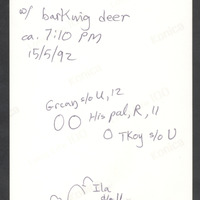 w/ barking deer
ca. 7:10 PM
15/5/92
s/o U, 12
His pal, R, 11
TKoy s/o U
Ila
d/o U